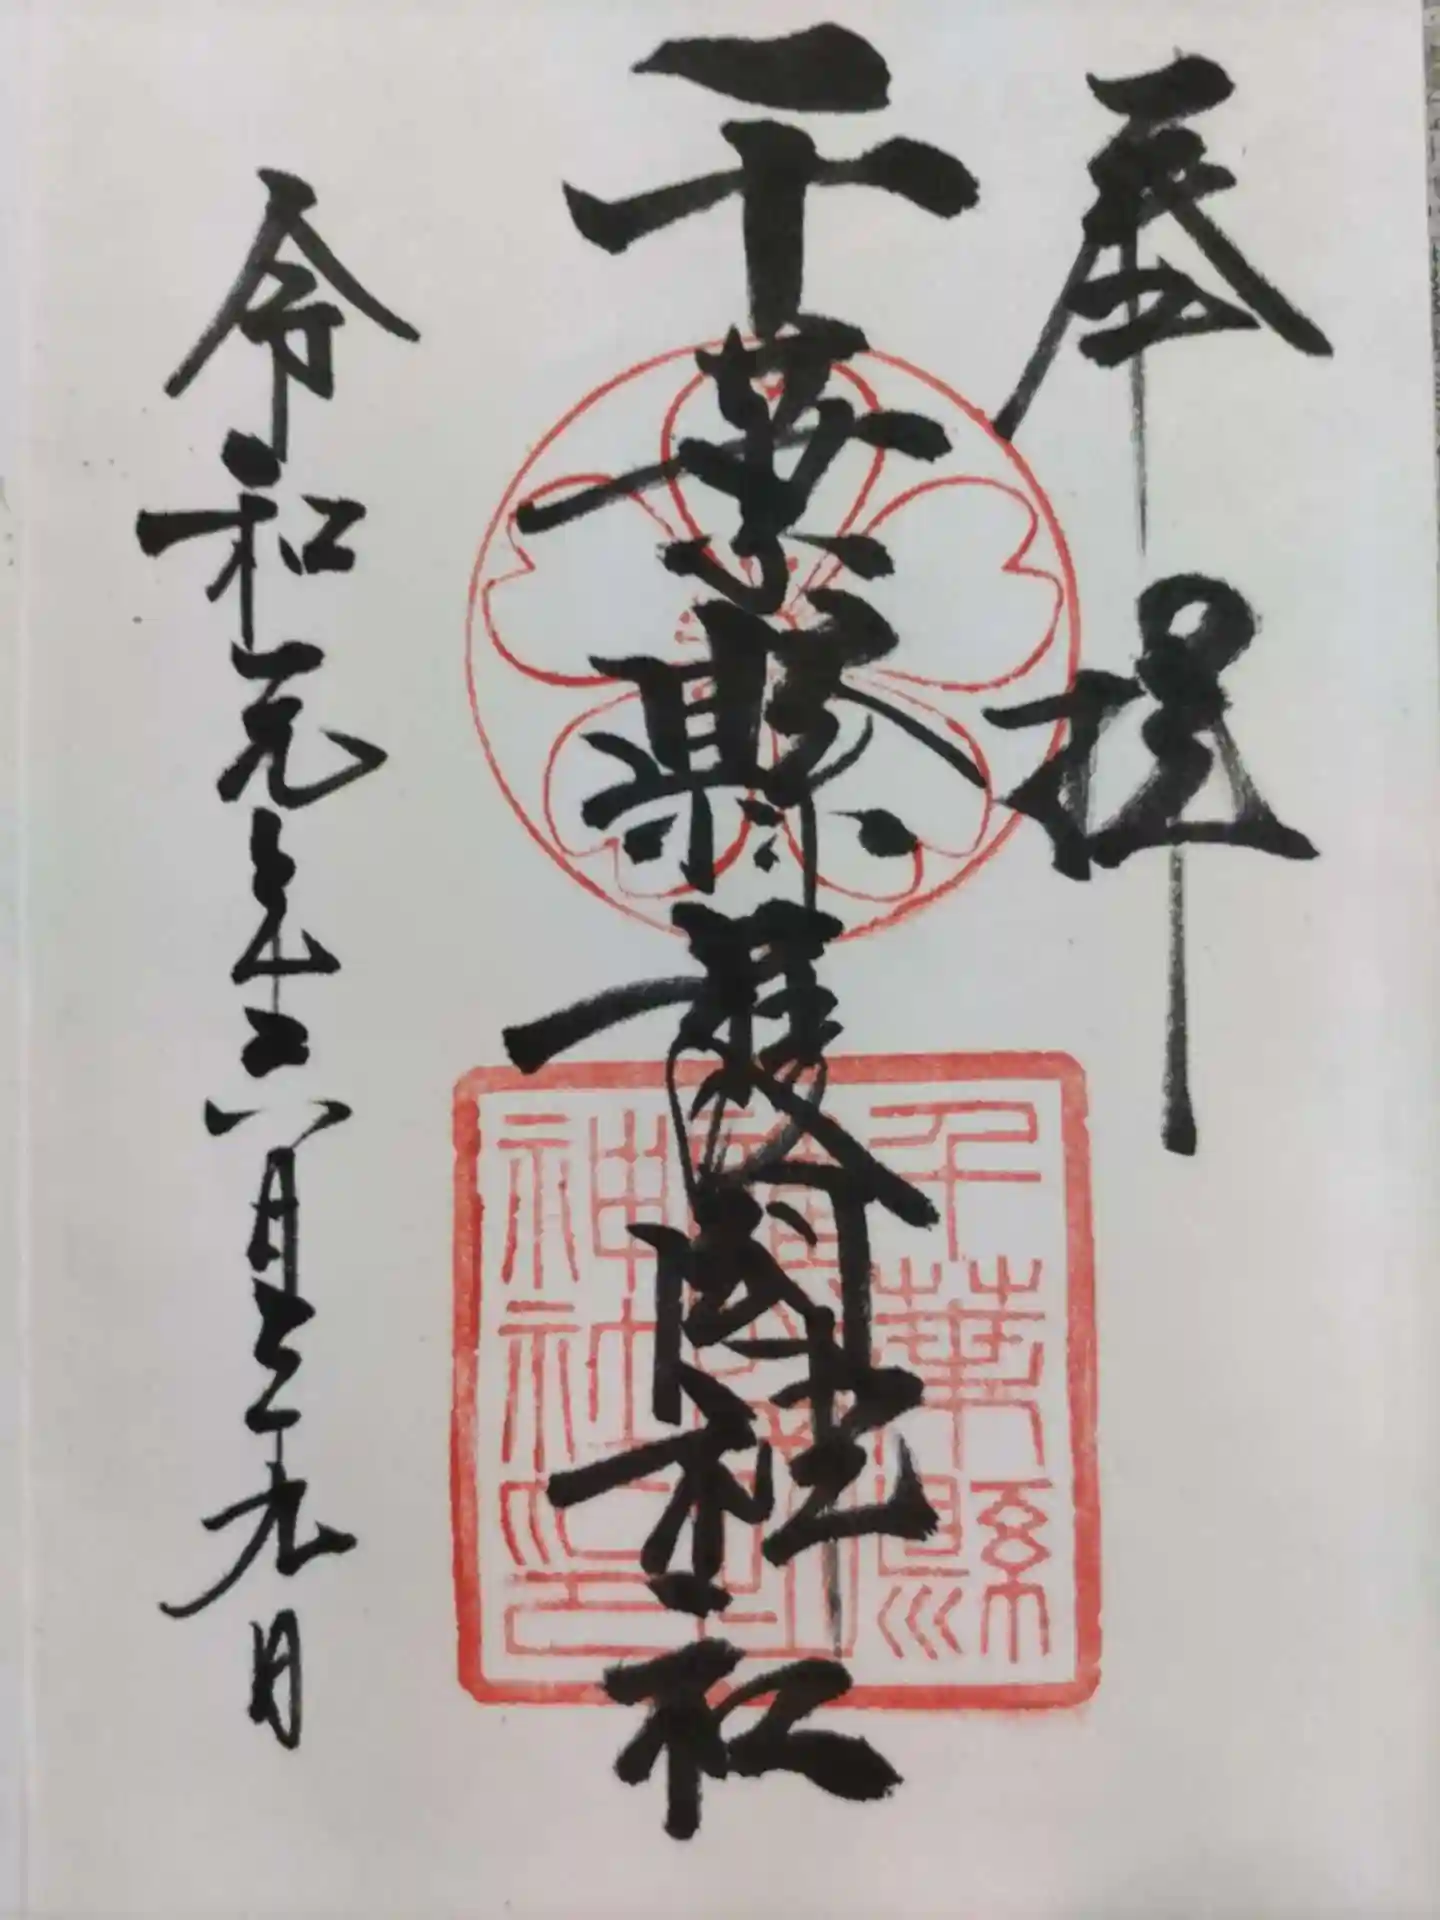 奉拝
千葉縣護國神社
令和元年六月二十九日
千葉縣
護國
神社印